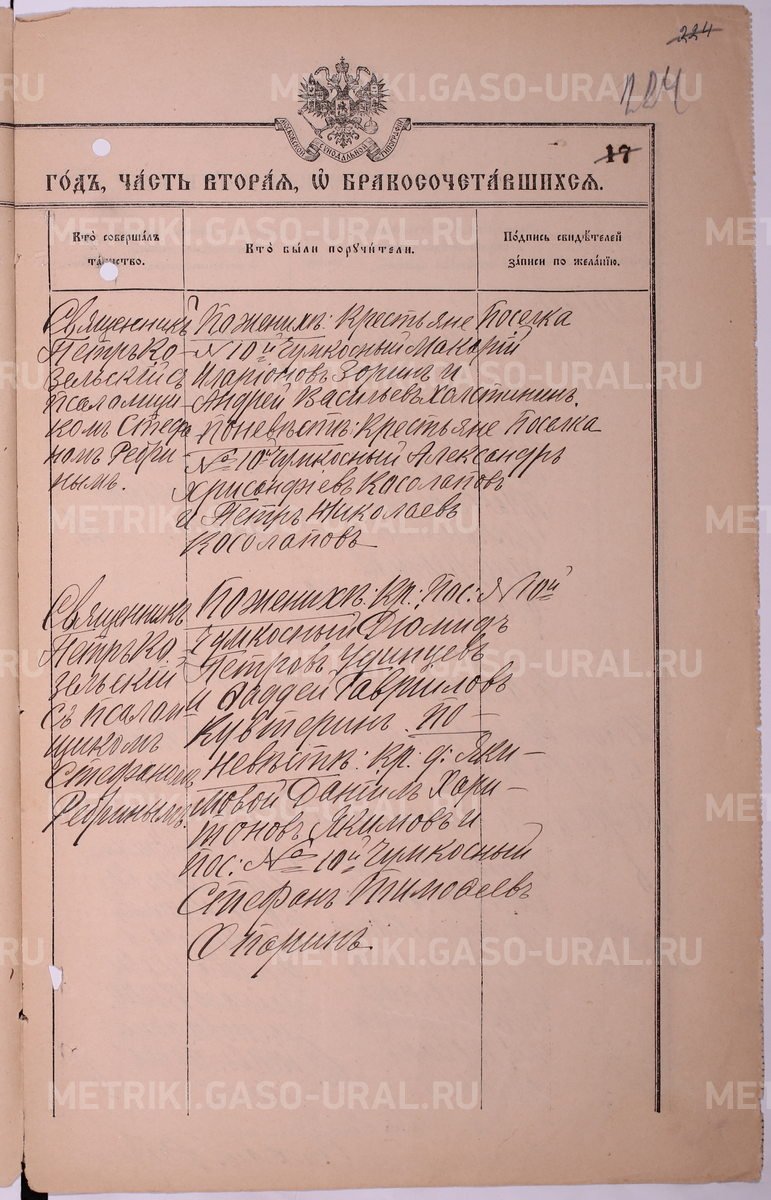 224
224
МОСКОВСКОЙ СѴНОДАЛЬНОЙ ТИПОГРАФІИ
17
ГО́ДЪ, ЧА́СТЬ ВТОРА́Я, Ѡ҆ БРАКОСОЧЕТА́ВШИХСЯ.
Кто̀ соверша́лъ
та́инство.
Кто̀ бы́ли порꙋчи́тели.
По́дпись свидѣ́телей
за́писи по жела́нїю.
Священникъ
Петръ Ко-
зельскій съ
псаломщи-
комъ Стефа-
номъ Ребри-
нымъ.
По женихѣ: Крестьяне Поселка
№ 10й Чумкосный Макарій
Иларіоновъ Зоринъ и
Андрей Васильевъ Холстининъ.
По невѣстѣ: Крестьяне Поселка
№ 10й Чумкосный Александръ
Хрисанфіевъ Косолаповъ
и Петръ Николаевъ
Косолаповъ
Священникъ
Петръ Ко-
зельскій
съ псалом-
щикомъ
Стефаномъ
Ребринымъ.
По женихѣ: Кр. Пос: № 10й
Чумкосный Діомидъ
Петровъ Удинцевъ
и Фаддей Гавриловъ
Кувтеринъ. По-
невѣстѣ: кр. д: Яки-
мовой Даніилъ Хари-
тоновъ Якимовъ и
пос: № 10й Чумкосный
Стефанъ Тимоѳеевъ
Опоринъ.
METRIKI.GASO-URAL.RU